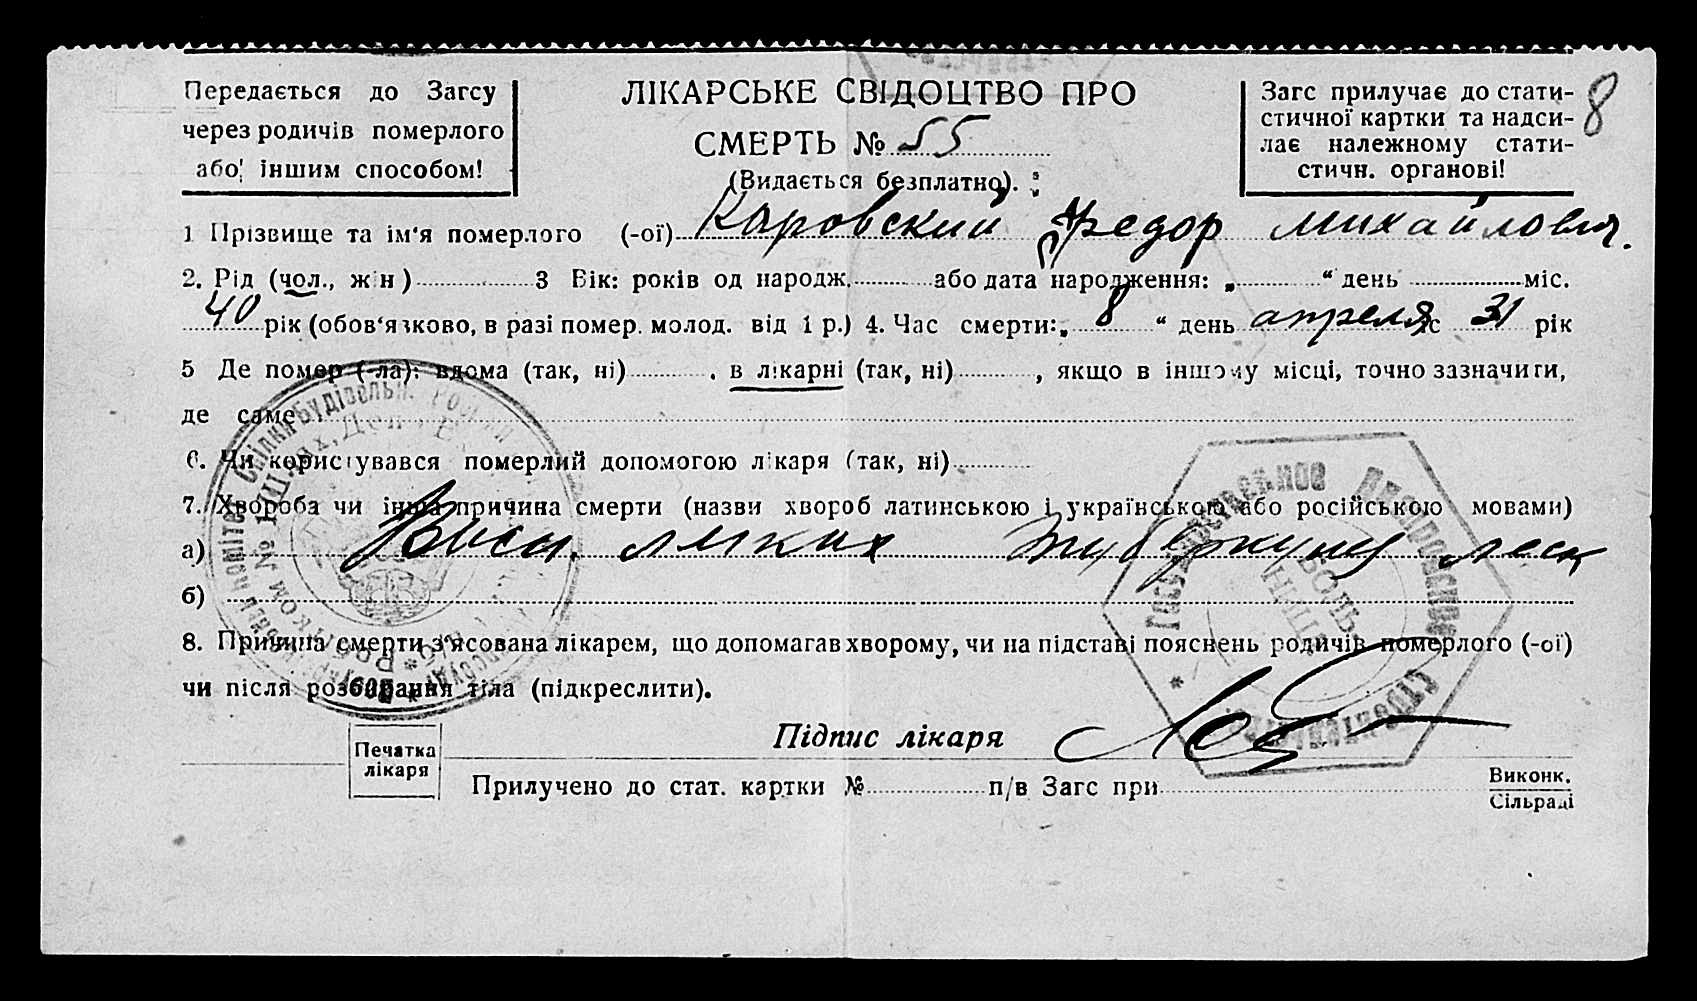 Передається до Загсу
через родичів померлого
або іншим способом!
ЛІКАРСЬКЕ СВІДОЦТВО ПРО
СМЕРТЬ № 55
(Видається безплатно).
Загс прилучає до стати-
стичної картки та надси-
лає належному стати-
стичн. органові!
8
1 Прізвище та ім'я померлого (-ої) Каровский Федор Михайлович.
2. Рід (чол., жін) 3 Вік: років од народж. або дата народження: „ “ день міс.
40 рік (обов'язково, в разі помер. молод. від 1 р.) 4. Час смерти: „ 8 “ день апреля 31 рік
5 Де помер (-ла): вдома (так, ні) , в лікарні (так, ні) , якщо в іншому місці, точно зазначити,
де саме
6. Чи користувався померлий допомогою лікаря (так, ні)
7. Хвороба чи інша причина смерти (назви хвороб латинською і українською або російською мовами)
а) легких
б)
8. Причина смерти з'ясована лікарем, що допомагав хворому, чи на підставі пояснень родичів померлого (-ої)
чи після розбирання тіла (підкреслити).
Печатка
лікаря
Підпис лікаря
Прилучено до стат. картки № п/в Загс при Виконк.
Сільраді
БОЛЬ
НИЦА